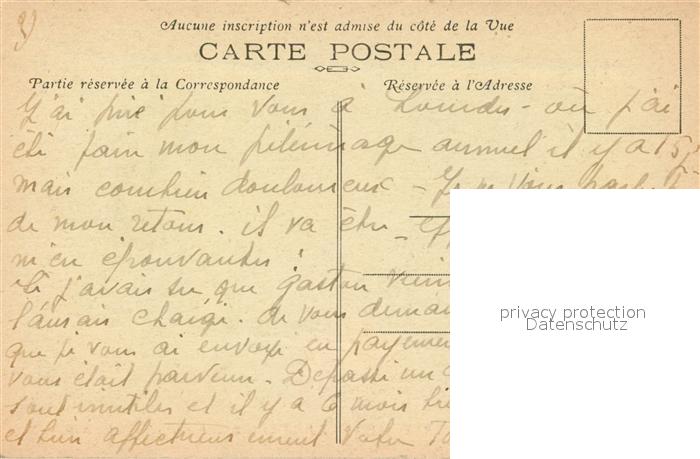 3)
Aucune inscription n'est admise du côté de la Vue
CARTE POSTALE
Partie réservée à la Correspondance
Réservée à l'Adresse
J'ai prié pour vous à Lourdes - où j'ai
été faire mon pèlerinage annuel il y a 15 j
mais combien douloureux - Je ne vous parle
de mon retour. il va être -
m'en épouvante !
Si j'avais su que Gaston
l'aurais chargé de vous
que je vous ai envoyé en payement
vous était parvenu.
sont inutiles et il y a 6 mois
et bien affectueusement Votre
privacy protection
Datenschutz